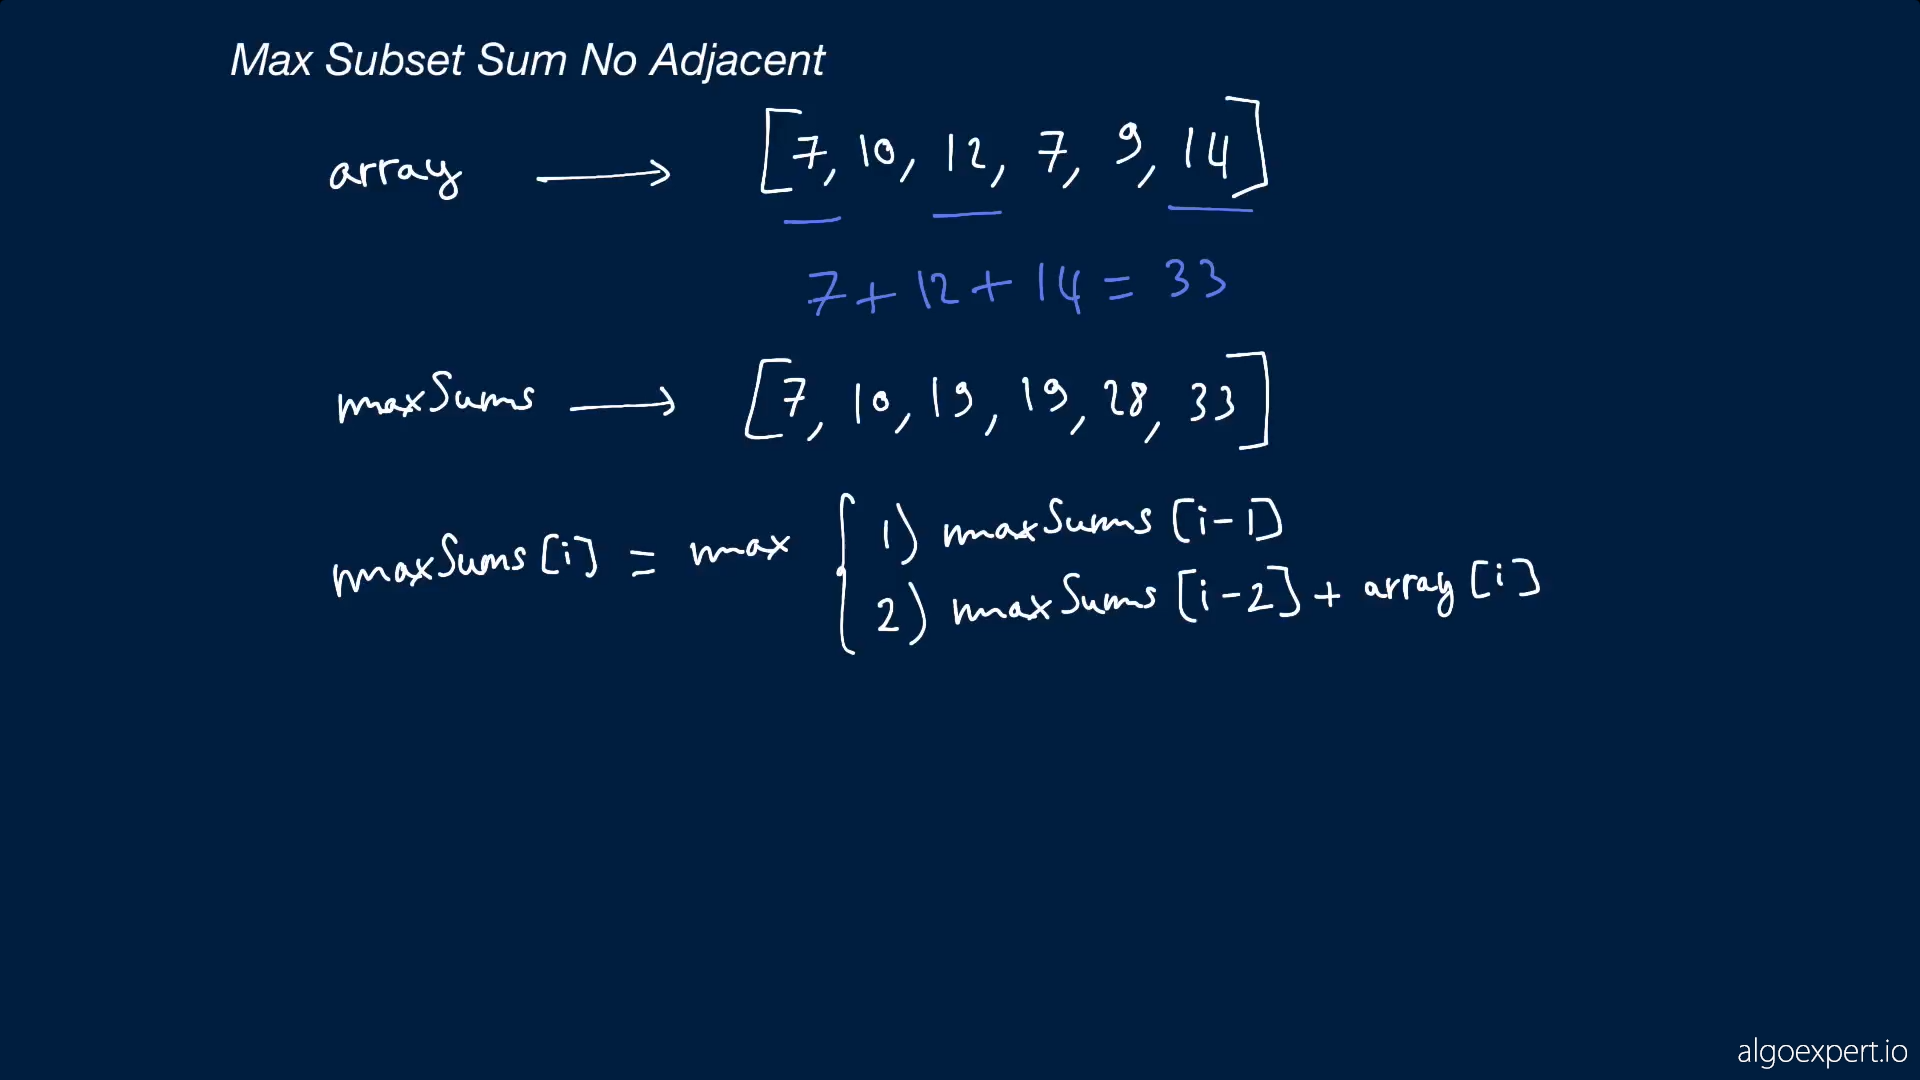 Max Subset Sum No Adjacent
array → [7, 10, 12, 7, 9, 14]
7 + 12 + 14 = 33
maxSums → [7, 10, 19, 19, 28, 33]
maxSums [i] = max { 1) maxSums [i-1]
2) maxSums [i-2] + array [i]
algoexpert.io